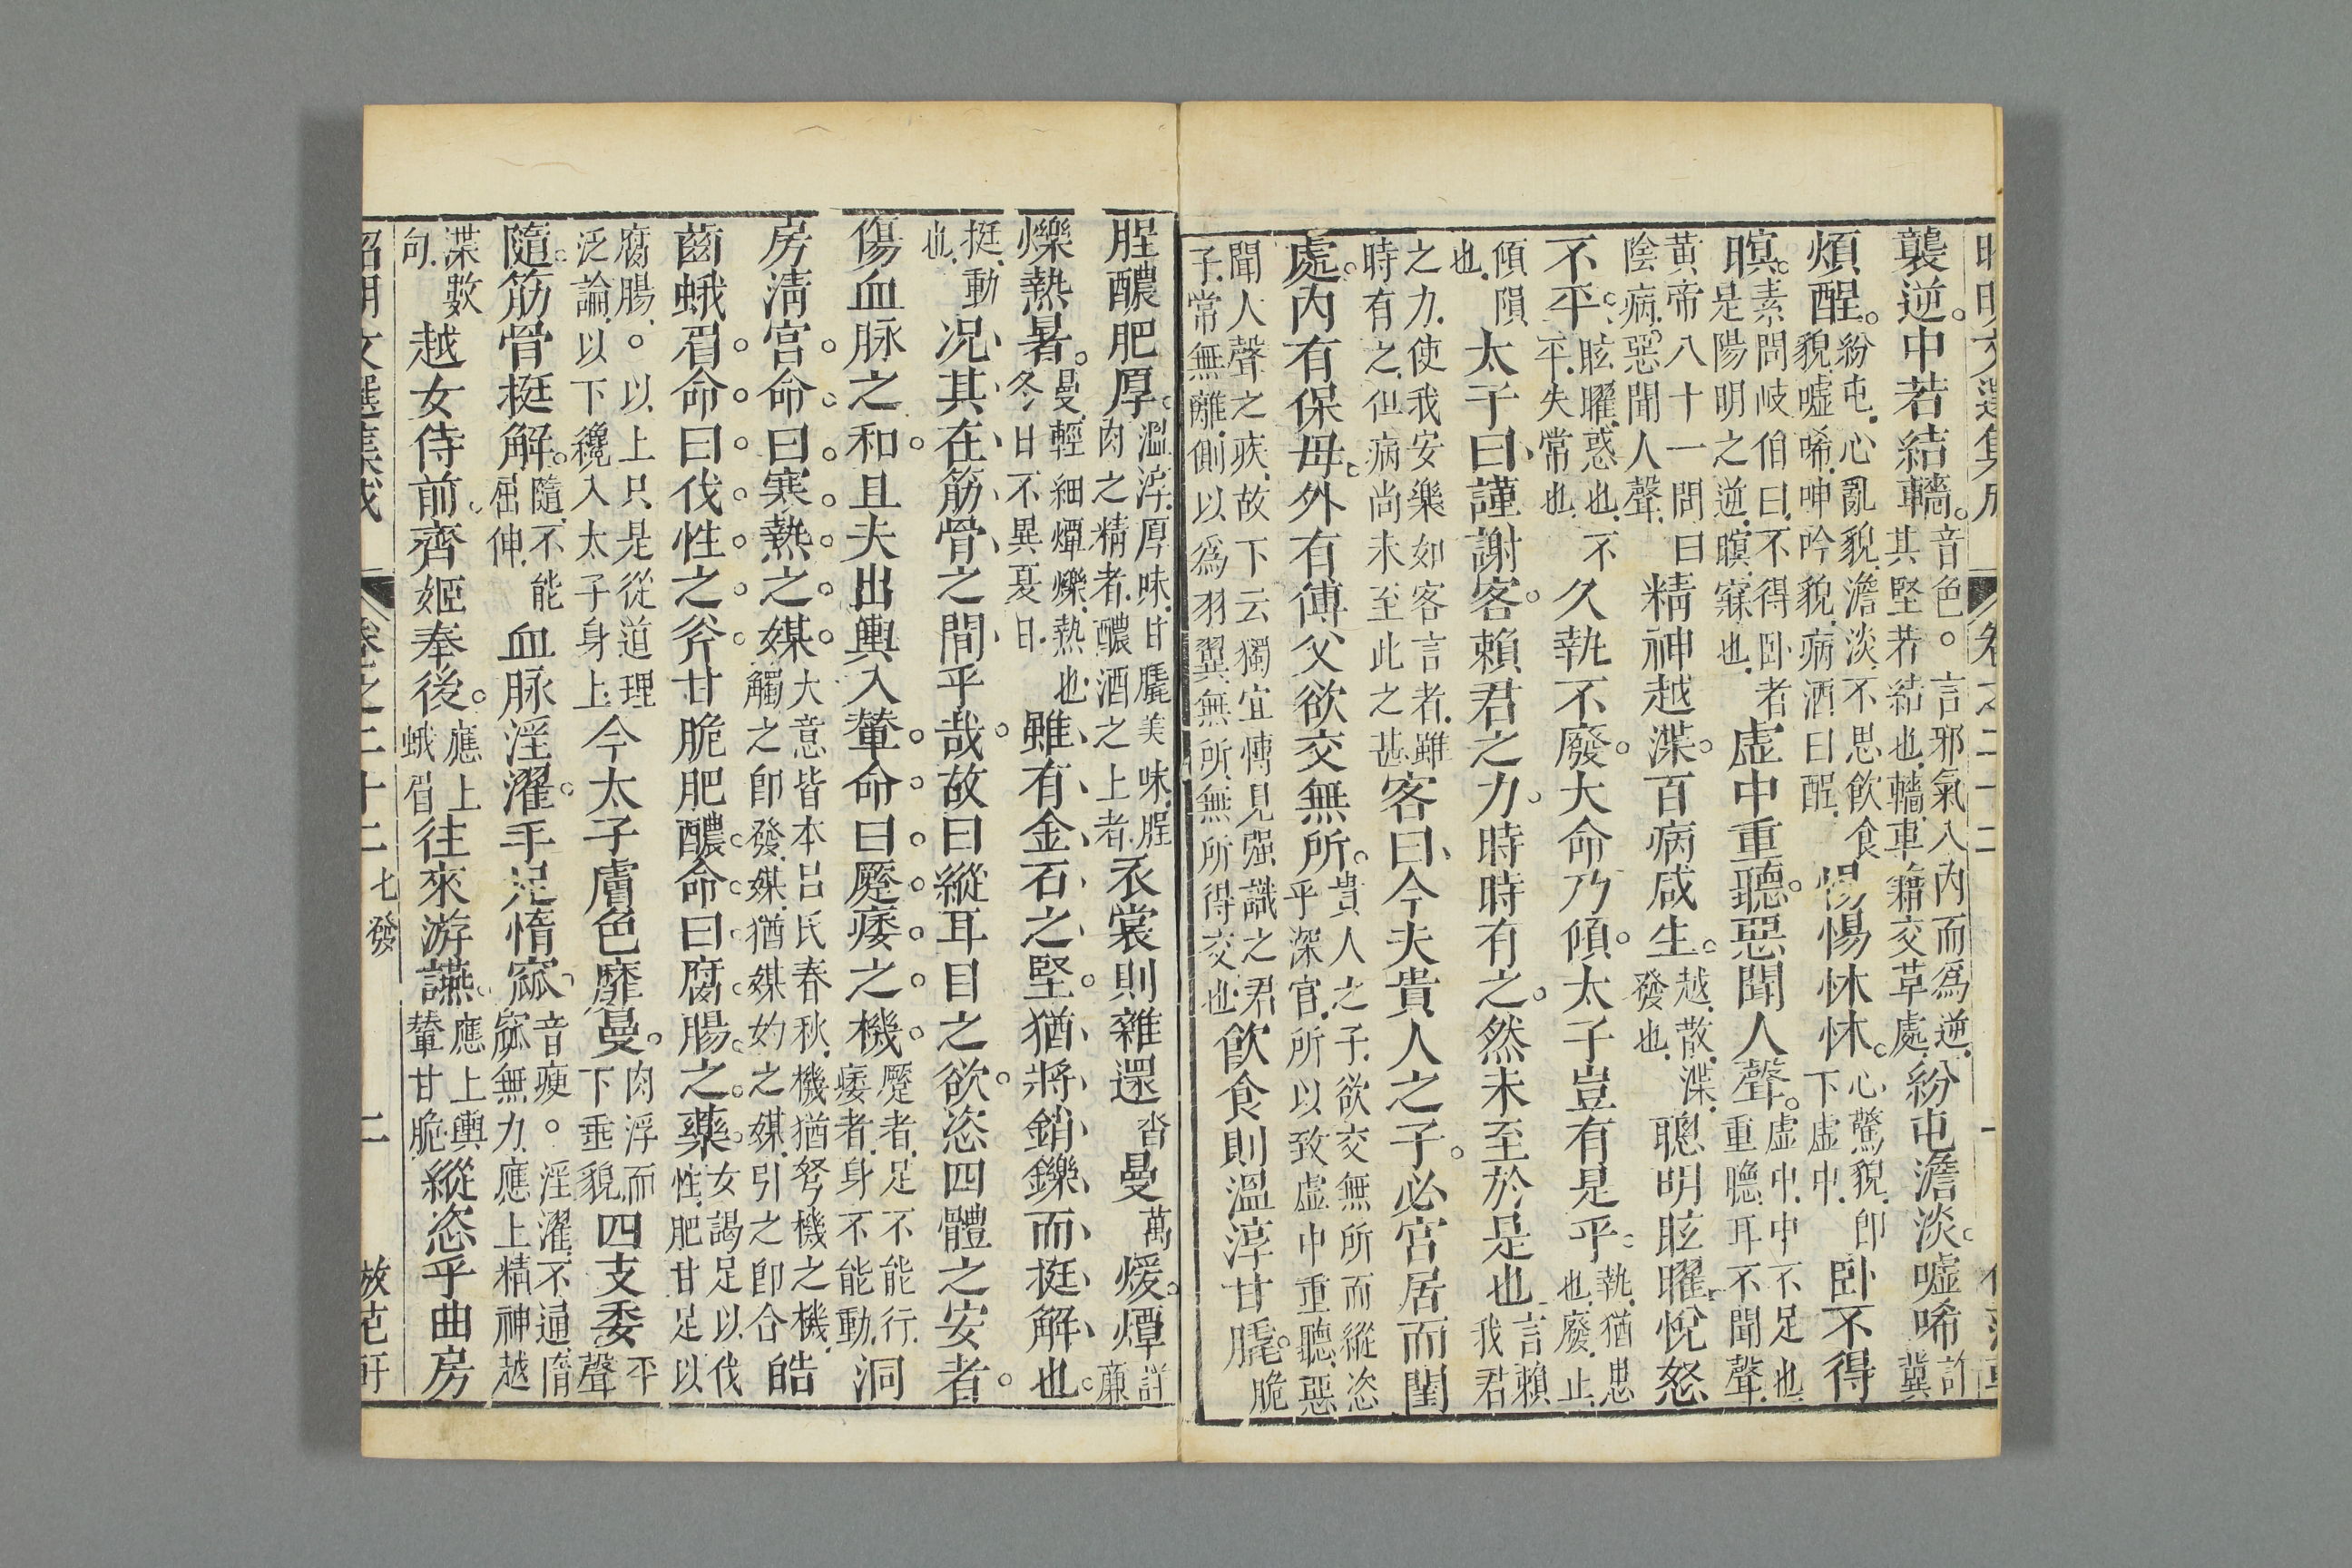 襲逆中若結轖音色。言邪氣入內而為逆其堅若結也轖車籍交草處紛屯澹淡噓唏許冀
煩酲紛屯心亂貌澹淡不思飲食貌噓唏呻吟貌病酒曰酲惕惕怵怵心驚貌即下虛中臥不得
瞑素問岐伯曰不得臥者是陽明之逆瞑寐也虛中重聽惡聞人聲虛中中不足也重聽耳不聞聲
黃帝八十一問曰陰病惡聞人聲精神越渫百病咸生越散渫發也聰明眩曜悅怒
不平眩曜惑也不平失常也久執不廢大命乃傾太子豈有是乎執猶思也廢止
傾隕也太子曰謹謝客賴君之力時時有之然未至於是也言賴我君
之力使我安樂如客言者雖時有之但病尚未至此之甚客曰今夫貴人之子必宮居而閨
處內有保母外有傅父欲交無所貴人之子欲交無所而縱恣乎深宮所以致虛中重聽惡
聞人聲之疾故下云獨宜博見强識之君子常無離側以為羽翼無所無所得交也飲食則溫淳甘膬脆
腥醲肥厚溫淳厚味甘膬美味腥肉之精者醲酒之上者衣裳則雜還沓曼萬煖燂詳廉
爍熱暑曼輕細燂爍熱也冬日不異夏日雖有金石之堅猶將銷鑠而挺解也
挺動也况其在筋骨之間乎哉故曰縱耳目之欲恣四體之安者
傷血脉之和且夫出輿入輦命曰蹷痿之機蹷者足不能行痿者身不能動洞
房淸宮命曰寒熱之媒大意皆本呂氏春秋機猶弩機之機觸之卽發媒猶媒妁之媒引之卽合皓
齒蛾眉命曰伐性之斧甘脆肥醲命曰腐腸之藥女謁足以伐性肥甘足以
腐腸。以上只是從道理泛論以下纔入太子身上今太子膚色靡曼肉浮而下垂貌四支委平聲
隨筋骨挺解隨不能屈伸血脉淫濯手足惰窳音瘐。淫濯不通惰窳無力應上精神越
渫數句越女侍前齊姬奉後應上蛾眉往來游讌應上輿輦甘脆縱恣乎曲房
卷之二十二 七發 二